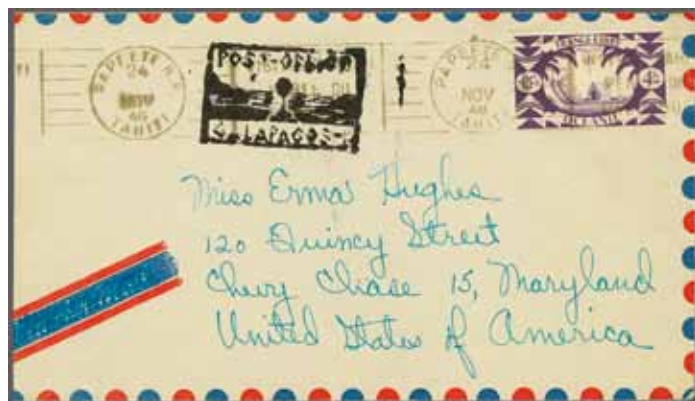 PAPEETE R.P.
24
NOV
46
TAHITI
POST-OFFICE
GALAPAGOS-
PAPEETE
24
NOV
46
TAHITI
OCEANIE
Miss Erma Hughes
120 Quincy Street
Chevy Chase 15, Maryland
United States of America